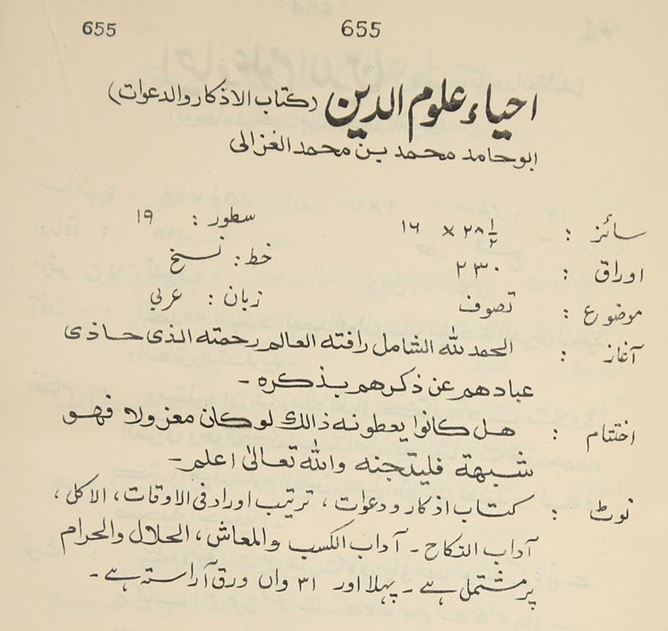 655 655
احیاء علوم الدین (کتاب الاذکار والدعوات)
ابو حامد محمد بن محمد الغزالی
سائز : ۲۸ ۱/۲ × ۱۶ سطور : ۱۹
اوراق : ۲۳۰ خط : نسخ
موضوع : تصوف زبان : عربی
آغاز : الحمد للہ الشامل رافتہ العالم رحمتہ الذی حاذی
عبادهم عن ذکرهم بذکرہ -
اختتام : هل کانوا یعطونہ ذالک لو کان معزولا فهو
شبهة فلیتجنہ واللہ تعالیٰ اعلم -
نوٹ : کتاب اذکار و دعوات، ترتیب اوراد فی الاوقات، الاکل،
آداب النکاح - آداب الکسب والمعاش، الحلال والحرام
پر مشتمل ہے - پہلا اور ۳۱ واں ورق آراستہ ہے -